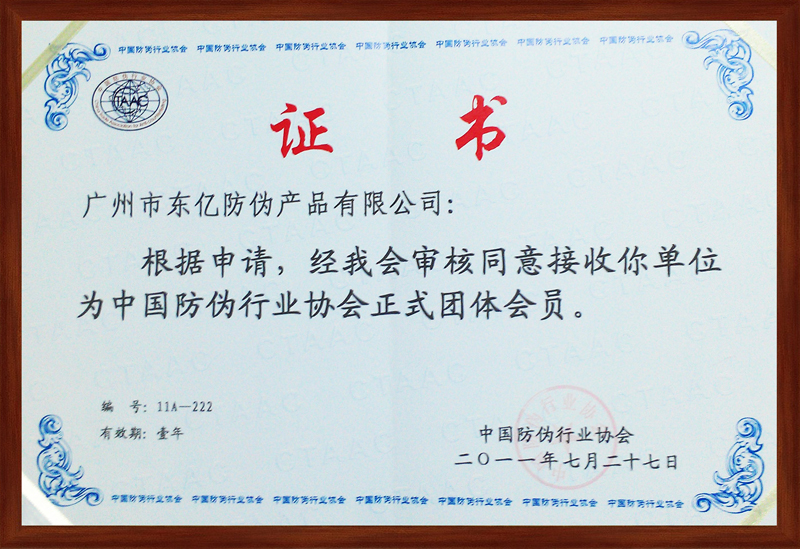 中国防伪行业协会 中国防伪行业协会 中国防伪行业协会 中国防伪行业协会 中国防伪行业协会 中国防伪行业协会 中国防伪行业协会
TAAC
证 书
广州市东亿防伪产品有限公司：
根据申请，经我会审核同意接收你单位
为中国防伪行业协会正式团体会员。
编 号：11A—222
有效期：壹年
中国防伪行业协会
二〇一一年七月二十七日
中国防伪行业协会 中国防伪行业协会 中国防伪行业协会 中国防伪行业协会 中国防伪行业协会 中国防伪行业协会 中国防伪行业协会